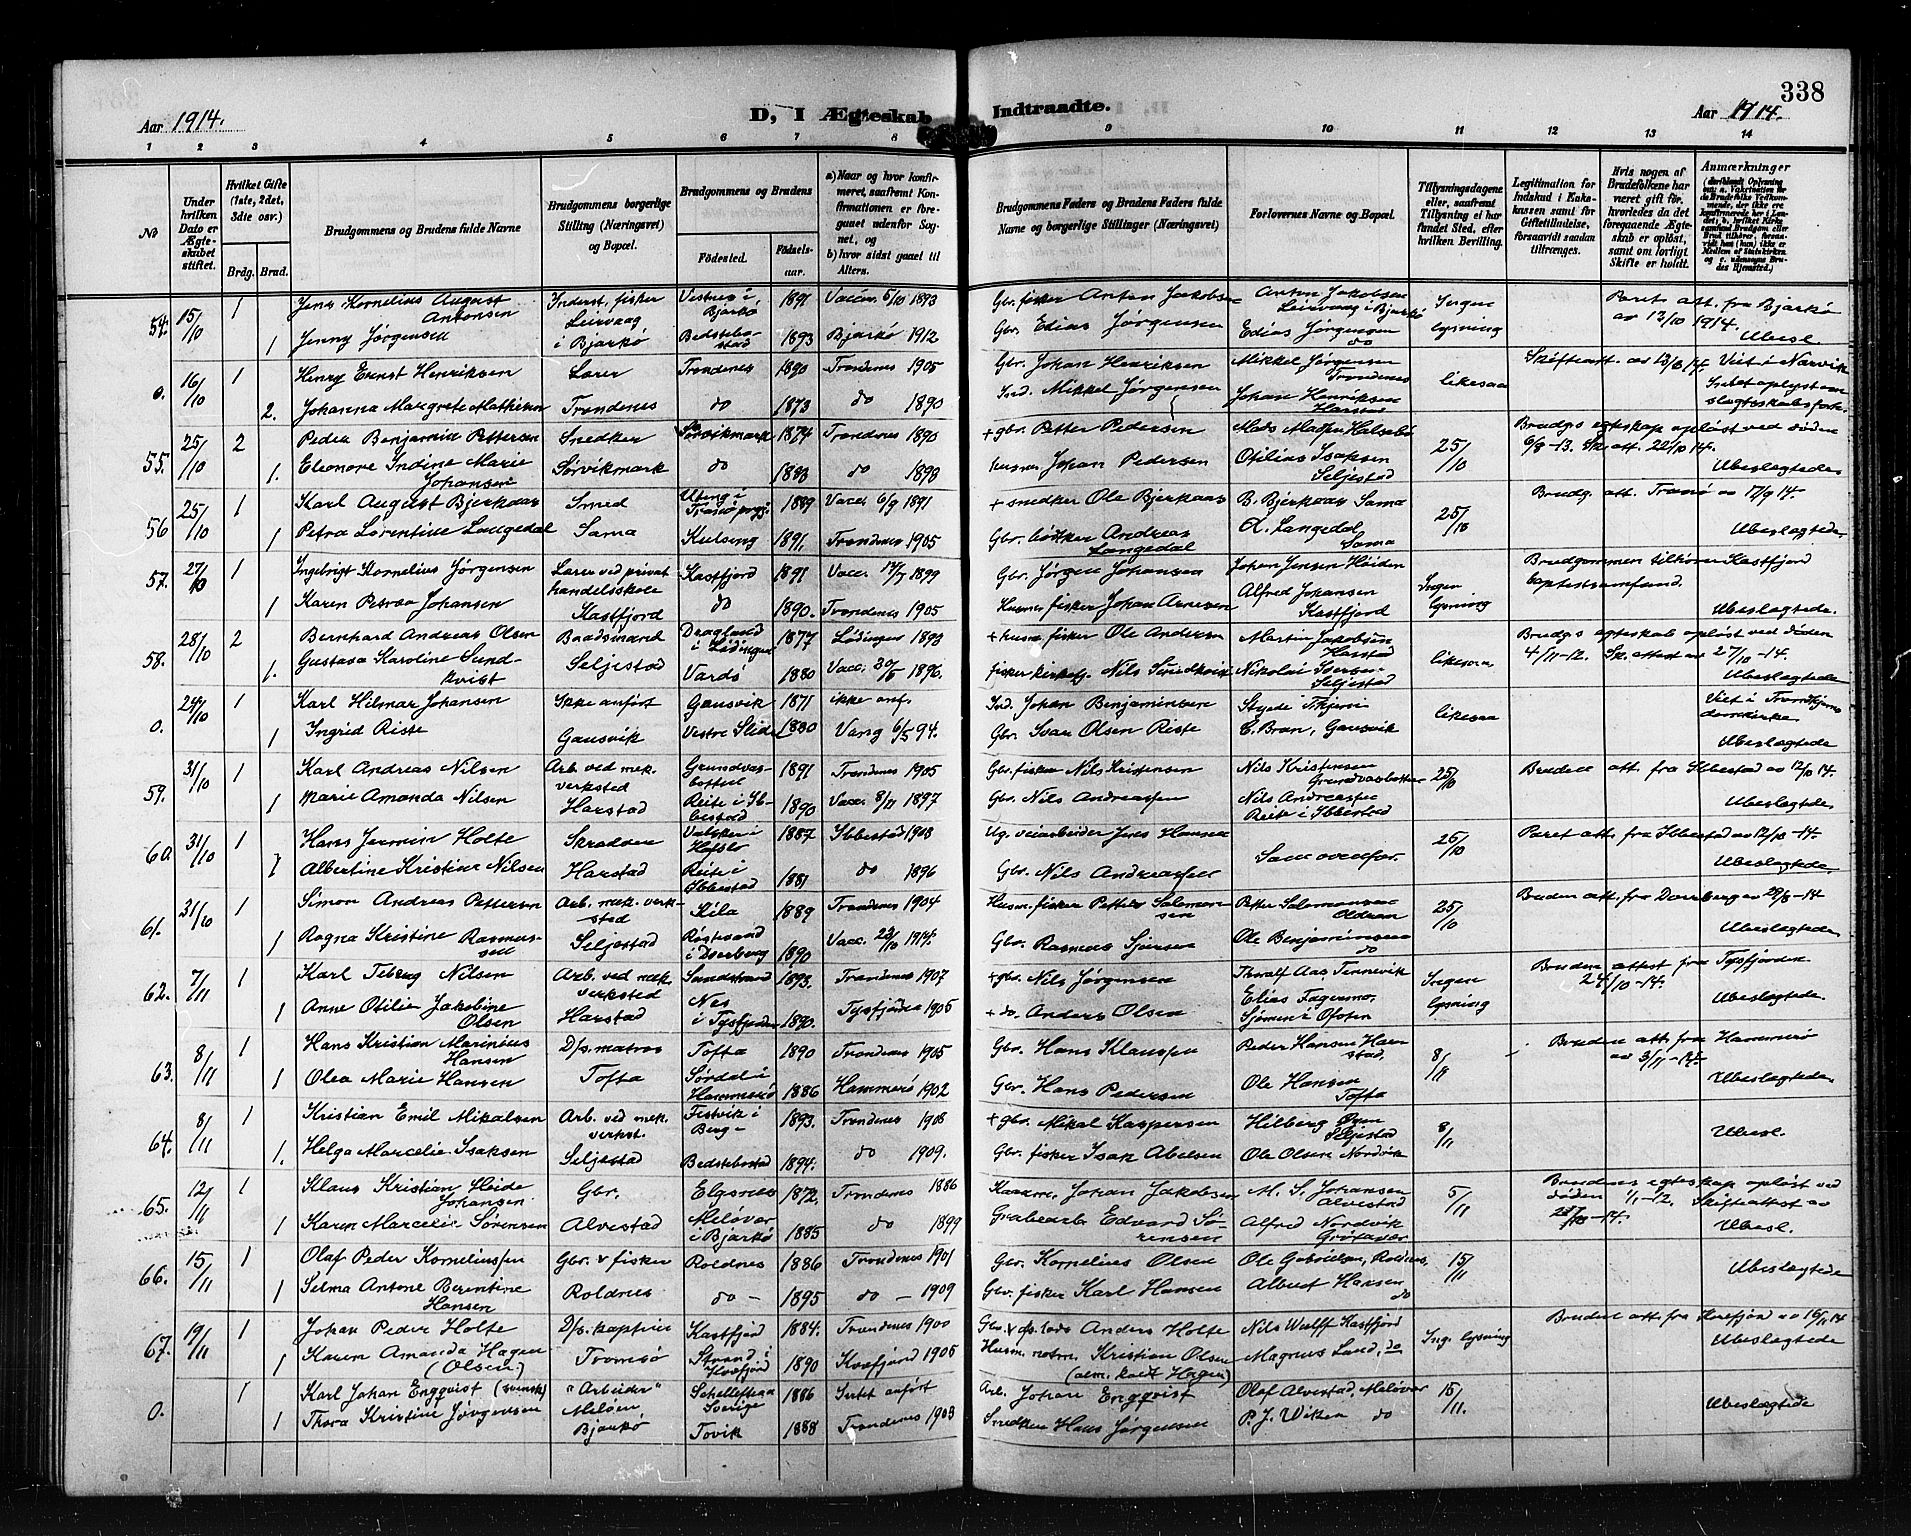 338
Aar 1914. D, I Ægteskab Indtraadte. Aar 1914.
1 2 3 4 5 6 7 8 9 10 11 12 13 14
No
Under hvilken Dato er Ægteskabet stiftet.
Hvilket Gifte (1ste, 2det, 3die osv.)
Brdg. Brud.
Brudgommens og Brudens fulde Navne
Brudgommens borgerlige Stilling (Næringsvei) og Bopæl.
Brudgommens og Brudens
Fødested. Fødselsaar.
a) Naar og hvor konfirmeret, saafremt Konfirmationen er foregaaet udenfor Sognet, og b) hvor sidst gaaet til Alters.
Brudgommens Faders og Brudens Faders fulde Navne og borgerlige Stillinger (Næringsvei)
Forlovernes Navne og Bopæl.
Tillysningsdagene eller, saafremt Tillysning ei har fundet Sted, efter hvilken Bevilling.
Legitimation for Indskud i Enkekassen samt for Giftetilladelse, forsaavidt saadan tiltrænges.
Hvis nogen af Brudefolkene har været gift før, hvorledes da det foregaaende Ægteskab er opløst, samt om lovligt Skifte er holdt.
Anmærkninger
54. 15/10 1 Jens Kornelius August Antonsen Inderst, fisker Leirvaag i Bjarkö 1891 Vaccin. 5/10 1893 Gbr. fisker Anton Jakobsen Anton Jakobsen Leirvaag i Bjarkö Ingen lysning Paret att. fra Bjarkö av 12/10 1914.
1 Jenny Jørgensen 1893 Bjarkö 1912 Gbr. Edias Jørgensen Edias Jørgensen do Ubesl.
0. 16/10 1 Henry Ernst Henriksen Lærer Trondenes 1890 Trondenes 1905 Gbr. Johan Henriksen Mikkel Jørgensen Trondenes likesaa Viet i Narvik
2. Johanna Margrete Mathisen Trondenes do 1873 do 1890 Ind. Mikkel Jørgensen Johan Henriksen Harstad
55. 25/10 2 Peder Benjamin Pettersen Snedker Sørvikmark 1874 Trondenes 1890 + gbr. Petter Pedersen 25/10 Brudgs egteskap opløst ved døden 6/8-13. Sk. att. 22/10 14.
1. Eleonore Indine Marie Johansen Sørvikmark do 1883 do 1898 husm. Johan Pedersen Otilius Isaksen Seljestad Ubeslægtede
56 25/10 1 Karl August Bjerkaas Smed 1889 Vacc. 6/9 1891 + snedker Ole Bjerkaas B. Bjerkaas Sama 25/10 Brudg. att. Tranö av 17/9 14.
1 Petra Lorentine Langedal Sama Kulseng 1891. Trondenes 1905 Gbr. bödker Andreas Langedal A. Langedal Sama Ubeslægtede.
57. 27/10 1 Ingebrigt Kornelius Jørgensen Lærer ved privat handelsskole Kastfjord Kastfjord 1891 1899 Gbr. Jørgen Johansen Johan Jensen Heiden Ingen lysning Brudgommen tilhører Kastfjord baptestsamfund.
1 Karen Petrea Johansen do 1890. Trondenes 1905 Husm. fisker Johan Arnesen Alfred Johansen Kastfjord Ubeslægtede.
58. 28/10 2 Bernhard Andreas Olsen Baadsmand Dragland i Lödingen 1877 Lödingen 1893 + husm. fisker Ole Andersen Martin Jakobsen Harstad likesaa Brudgs egteskab opløst ved döden 4/11-12. Sk. attest av 27/10-14.
1. Gustava Karoline Sundkvist Seljestad Vardö 1880 Vacc. 1896. Nils Sundkvist Nikolai Seljestad Ubeslægtede
0. 29/10 1 Karl Hilmar Johansen Ikke anfört Gausvik 1871 ikke anf. Ind. Johan Benjaminsen likesaa Viet i Trondhjems domkirke.
1 Ingrid Riste Gausvik Vestre Slidre 1880 Vang 6/5 94. Gbr. Ivar Olsen Riste E. Brun, Gausvik Ubeslægtede
59. 31/10 1 Karl Andreas Nilsen Arb. ved mek. verksted Grundvasbotten 1891 Trondenes 1905 Gbr. fisker Nils Kristensen Nils Kristensen Grundvasbotten 25/10 Bruden att. fra Ibbestad av 12/10 14.
1 Marie Amanda Nilsen Harstad Reite i Ibbestad 1890 Vacc. 1897 Gbr. Nils Andreassen Nils Andreassen Reite i Ibbestad Ubeslægtede
60. 31/10 1 Hans Jermin Holte Skrædder 1887 Ibbestad 1908 Ug. veiarbeider Jens Hansen Som ovenfor. 25/10 Paret att. fra Ibbestad av 12/10-14.
1 Albertine Kristine Nilsen Harstad Reite i Ibbestad 1881 do 1896 Gbr. Nils Andreassen Ubeslægtede.
61. 31/10 1 Simon Andreas Pettersen Arb. mek. verksted Kila 1889 Trondenes 1904 Husm. fisker Petter Salomonsen Petter Salomonsen 25/10 Bruden att. fra Dverberg av 29/8-14
1 Ragna Kristine Rasmussen Seljestad i Dverberg 1890 Vacc. 1914. Gbr. Rasmus Ole Benjaminsen do Ubeslægtede.
62. 7/11 1 Karl Teberg Nilsen Arb. ved mek. verksted Sandstrand 1893. Trondenes 1907 + gbr. Nils Jørgensen Thoralf Aas Tennevik Ingen lysning Bruden attest fra Tysfjorden 24/10-14.
1 Anne Otilie Jakobine Olsen Harstad Nes i Tysfjorden 1890. Tysfjorden 1905 + do. Anders Olsen Elias Fagermo, Ofoten Ubeslægtede.
63. 8/11 1 Hans Kristian Marinius Hansen D/s. matros Tofta 1890 Trondenes 1905 Gbr. Hans Klaussen Peder Hansen Harstad. 8/11 Bruden att. fra Hammerö av 3/11-14.
1 Olea Marie Hansen Tofta Sørdal i Hammerö 1886 Hammerö 1902 Gbr. Hans Pedersen Ole Hansen Tofta Ubeslægtede.
64. 8/11 1 Kristian Emil Mikalsen Arb. ved mek. verkst. 1893. Trondenes 1908 + gbr. Mikal Kaspersen Hilberg Seljestad 8/11
1. Helga Marcelie Isaksen Seljestad Bedstebostad 1894. do 1909. Gbr. fisker Isak Abelsen Ole Olsen Nordvik Ubesl.
65. 12/11 1 Klaus Kristian Heide Johansen Gbr. Elgsnes 1872, Trondenes 1886 Johan Jakobsen M. S. Johansen Alvestad 5/11 Brudens egteskap opløst ved döden 1/1-12. Skifteattest av 28/10-14.
1 Karen Marcelie Sørensen Alvestad Meløvær i Bjarkö 1885 do 1899 Grubearb. Edvard Sørensen Alfred Nordvik Grötavær Ubesl.
66. 15/11 1 Olaf Peder Korneliussen Gbr. & fisker Roldnes 1886 Trondenes 1901 Gbr. Kornelius Olsen Ole Gabrielsen, Roldnes. 15/11
1 Selma Antone Berentine Hansen Roldnes do - 1895 do - 1909 Gbr. fisker Karl Hansen Albert Hansen do Ubeslægtede
67. 19/11 1 Johan Peder Holte D/s. kaptein Kastfjord 1884. Trondenes 1900 Anders Holte Nils Wulff Kastfjord Ing. lysning Bruden att. fra Kvefjord av 16/11 14
1 Karen Amanda Hagen (Olsen) Tromsö Strand i Kvefjord 1890 Kvefjord 1905 Husm. Kristian Olsen (alm. kaldt Hagen) Magnus Lund, do Ubeslægtede
0. 1 Karl Johan Engqvist (svensk) "Arbeider" Skellefteaa Sverige 1886 Intet anfört Arb. Johan Engqvist Olaf Alvestad, Meløvær 15/11. Ubeslægtede
1 Thora Kristine Jørgensen Meløen Bjarkö Tovik 1888 Trondenes 1903 Snedker Hans Jørgensen P. J. Wiken do